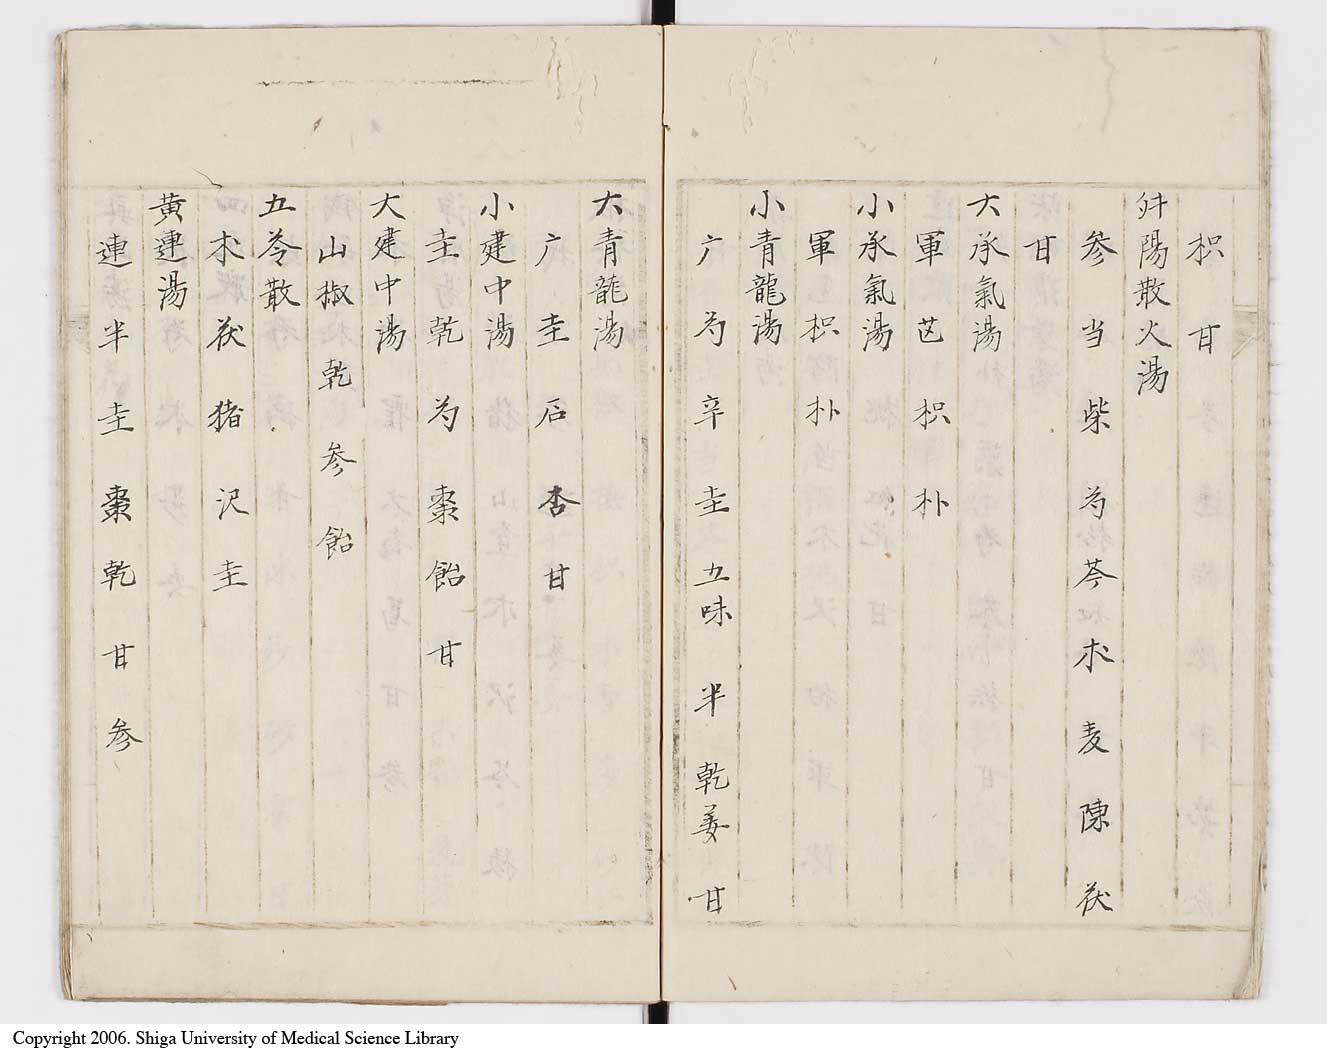 枳甘
升陽散火湯
参当柴芍芩朮麦陳茯
甘
大承氣湯
軍芒枳朴
小承氣湯
軍枳朴
小青龍湯
广芍辛圭五味半乾姜甘
大青龍湯
广圭石杏甘
小建中湯
圭乾芍棗飴甘
大建中湯
山椒乾参飴
五苓散
朮茯猪沢圭
黄連湯
連半圭棗乾甘参
Copyright 2006. Shiga University of Medical Science Library